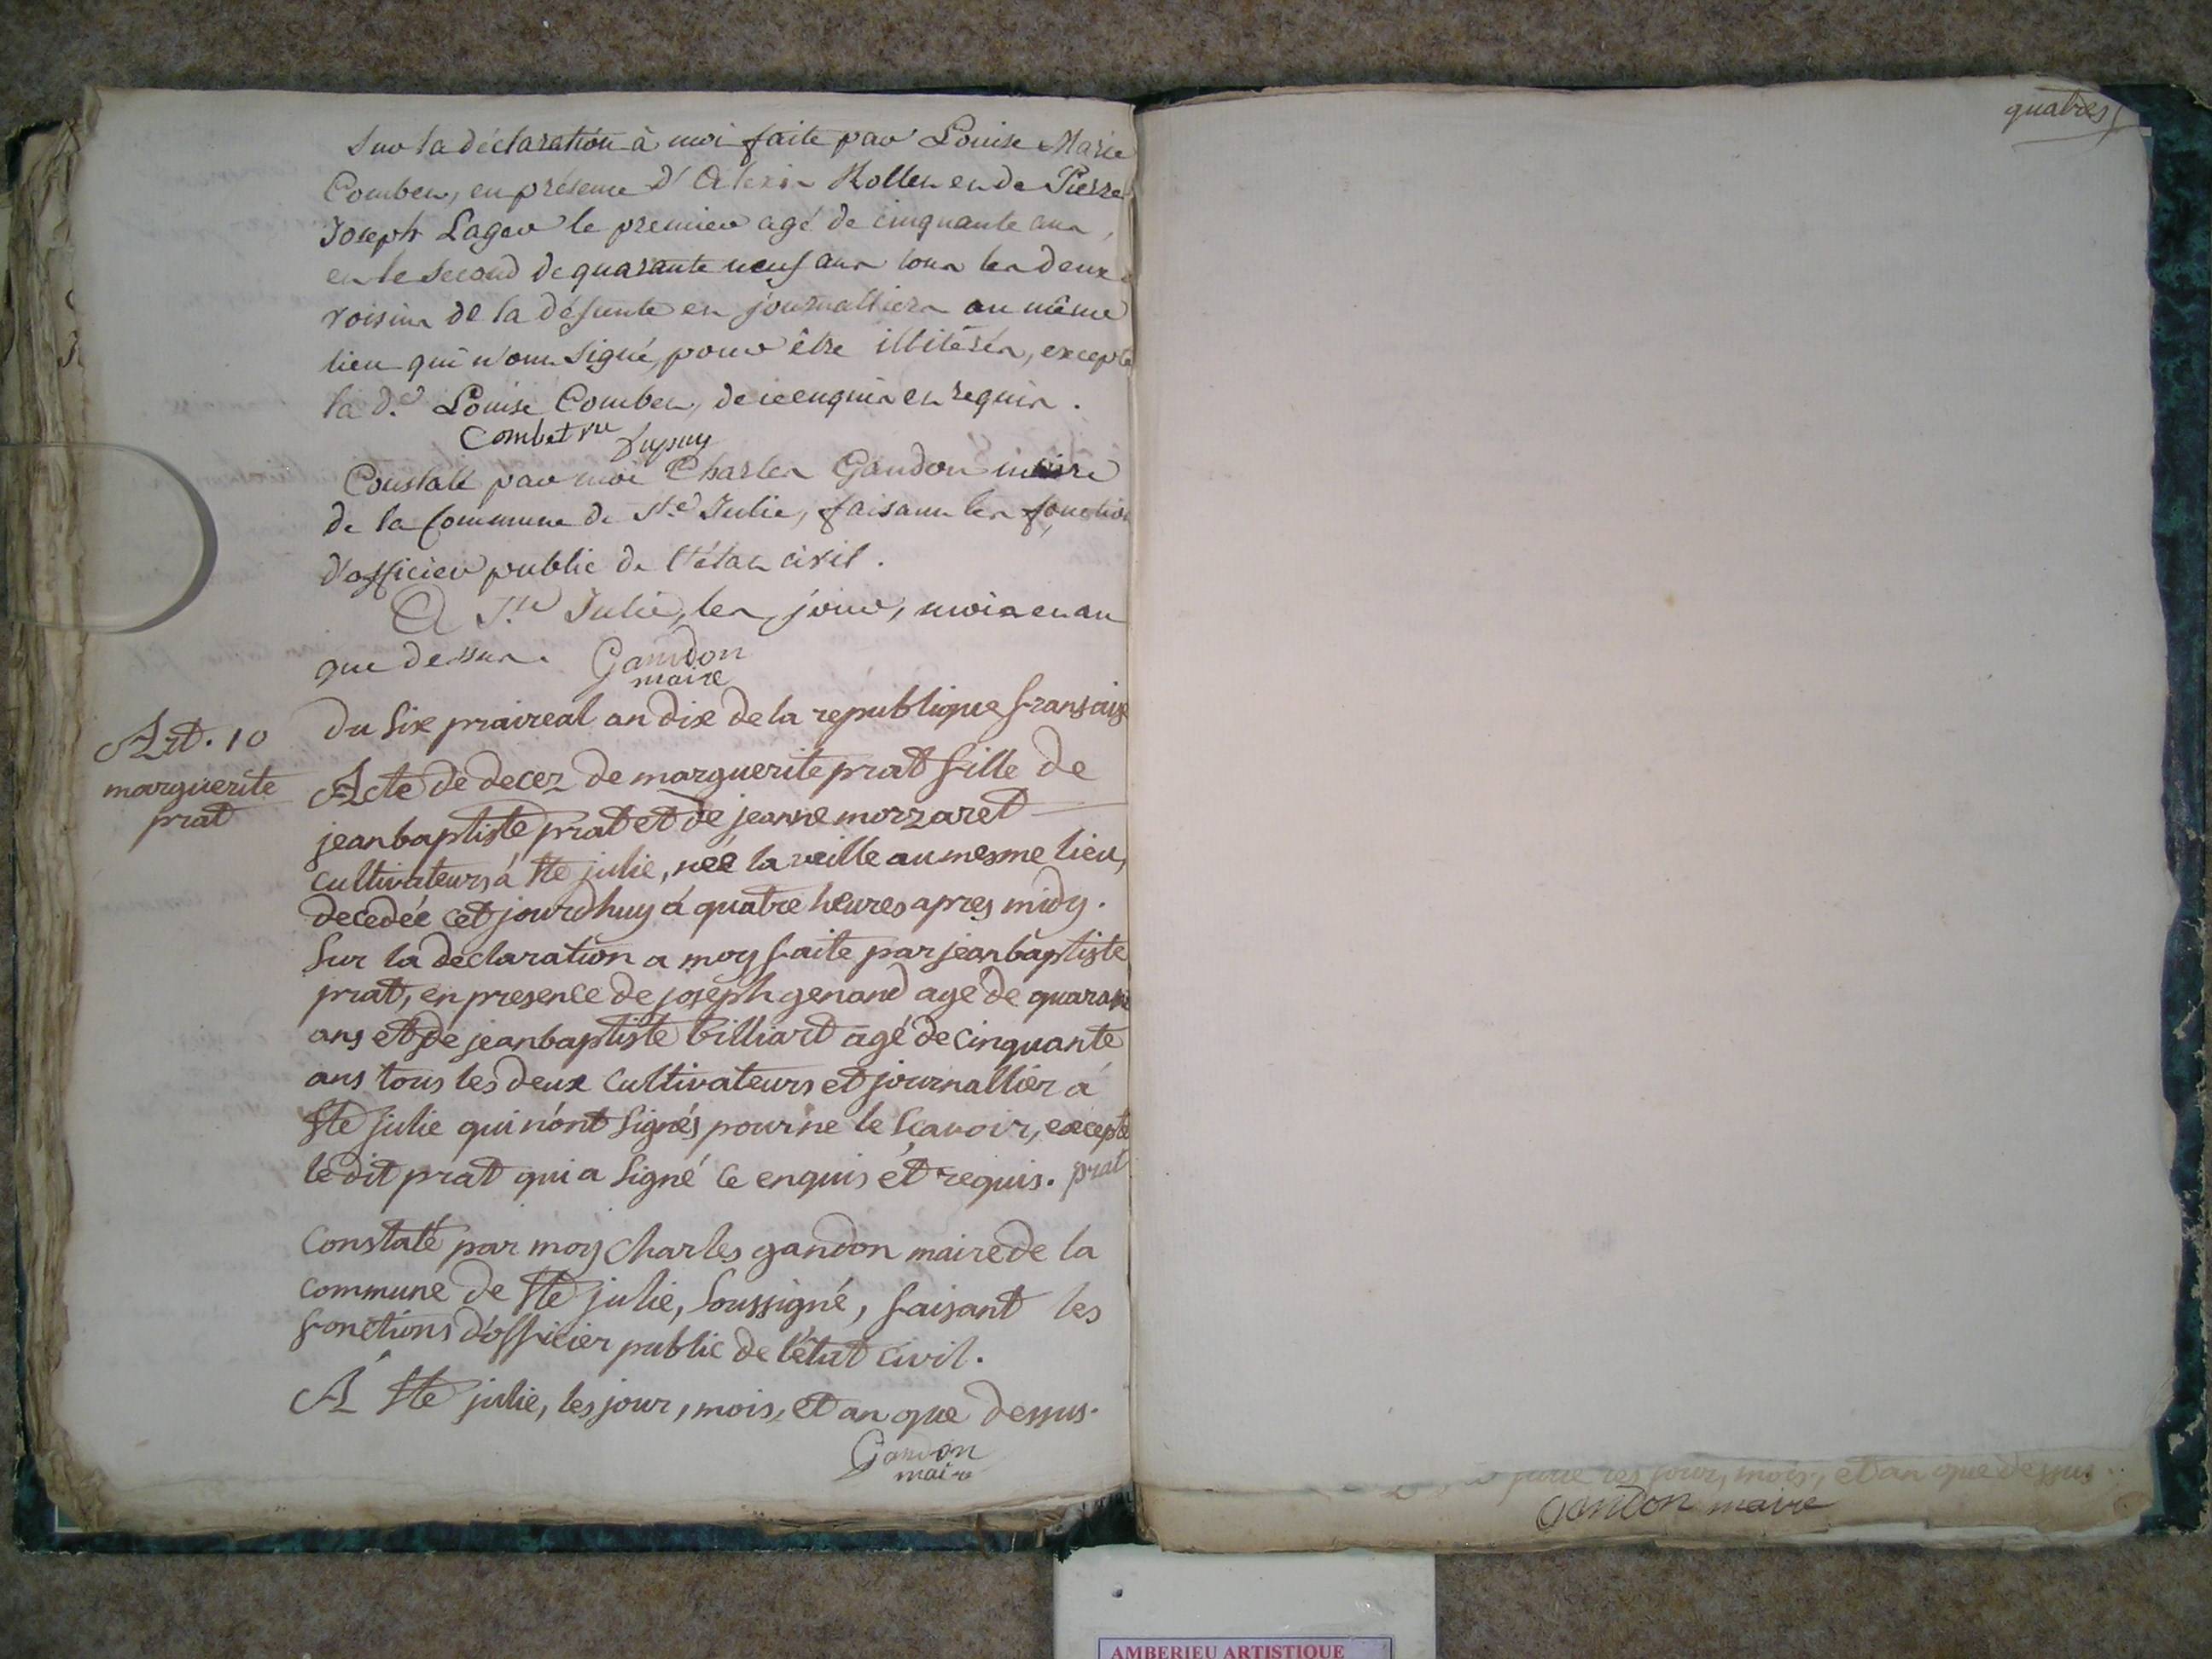 Sur la déclaration à moi faite par Louise Marie
Combet, en présence d'Alexis Rollet et de Pierre
Joseph Lager le premier agé de cinquante ans,
et le second de quarante neuf ans tous les deux
voisins de la défunte et journalliers au même
lieu qui n'ont signé, pour être illitérés, excepté
la d.e Louise Combet, de ce enquis et requis.
Combet vve Dupuy
Constaté par moi Charles Gandon maire
de la Commune de Ste Julie, faisant les fonction
d'officier public de l'état civil.
A Ste Julie, les jour, mois et an
que dessus. Gandon
maire
Art. 10
marguerite
prat
Du six praireal an dix de la republique fransaise
Acte de decez de marguerite prat fille de
jeanbaptiste prat et de jeanne morzaret
cultivateurs á Ste julie, née la veille au mesme lieu,
decedée cet jourdhuy á quatre heures apres midy.
Sur la declaration a moy faite par jeanbaptiste
prat, en presence de joseph genand agé de quarante
ans et de jeanbaptiste billiard agé de cinquante
ans tous les deux cultivateurs et journallier á
Ste julie qui n'ont signés pour ne le sçavoir, excepté
le dit prat qui a signé ce enquis et requis. prat
Constaté par moy Charles gandon maire de la
commune de Ste julie, soussigné, faisant les
fonctions d'officier public de l'état civil.
A Ste julie, les jour, mois, et an que dessus.
Gandon
maire
quatres
julie les jour, mois, et an que dessus.
Gandon maire
AMBERIEU ARTISTIQUE